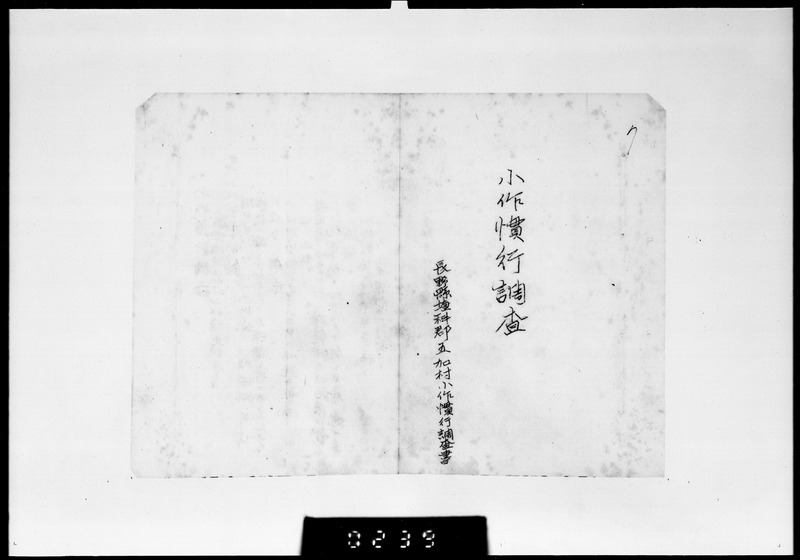 小作慣行調査
長野縣埴科郡五加村小作慣行調査書
0239